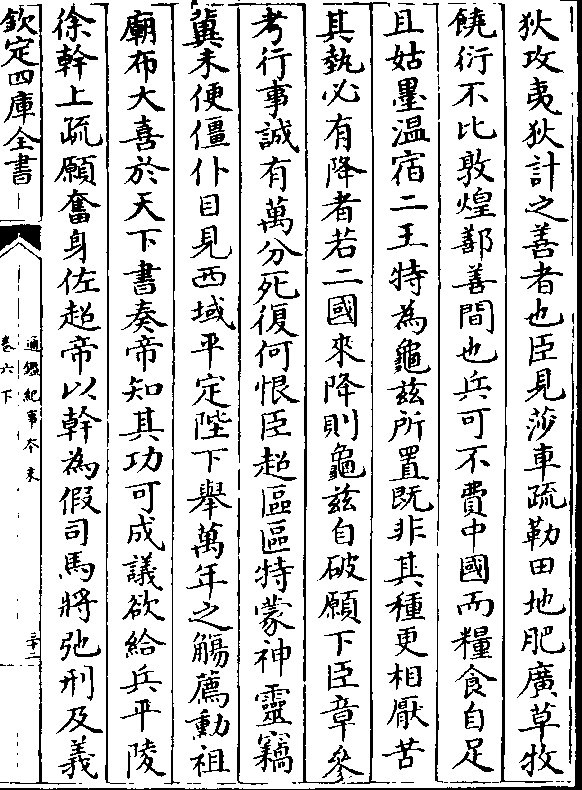 狄攻夷狄計之善者也臣見莎車疏勒田地肥廣草牧
饒衍不比敦煌鄯善間也兵可不費中國而糧食自足
且姑墨溫宿二王特為龜兹所置既非其種更相厭苦
其埶必有降者若二國來降則龜兹自破願下臣章參
考行事誠有萬分死復何恨臣超區區特蒙神靈竊
冀未便僵仆目見西域平定陛下舉萬年之觴薦勳祖
廟布大喜於天下書奏帝知其功可成議欲給兵平陵
徐幹上疏願奮身佐超帝以幹為假司馬將弛刑及義
欽定四庫全書
通鑑紀事本末
卷六下
三十二